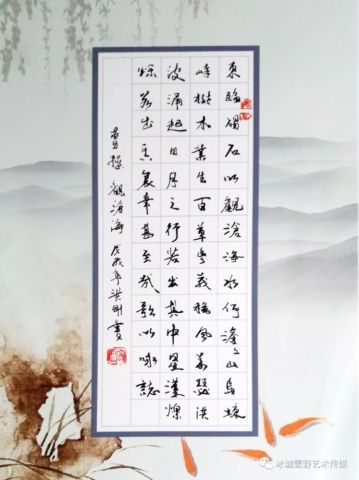 東臨碣石以觀滄海水何澹〻山島竦
峙樹木叢生百草豐茂秋風蕭瑟洪
波涌起日月之行若出其中星漢燦
爛若出其裏幸甚至哉歌以咏誌
曹操 觀滄海 戊戌年洪剛書
冰城雷野艺术传媒